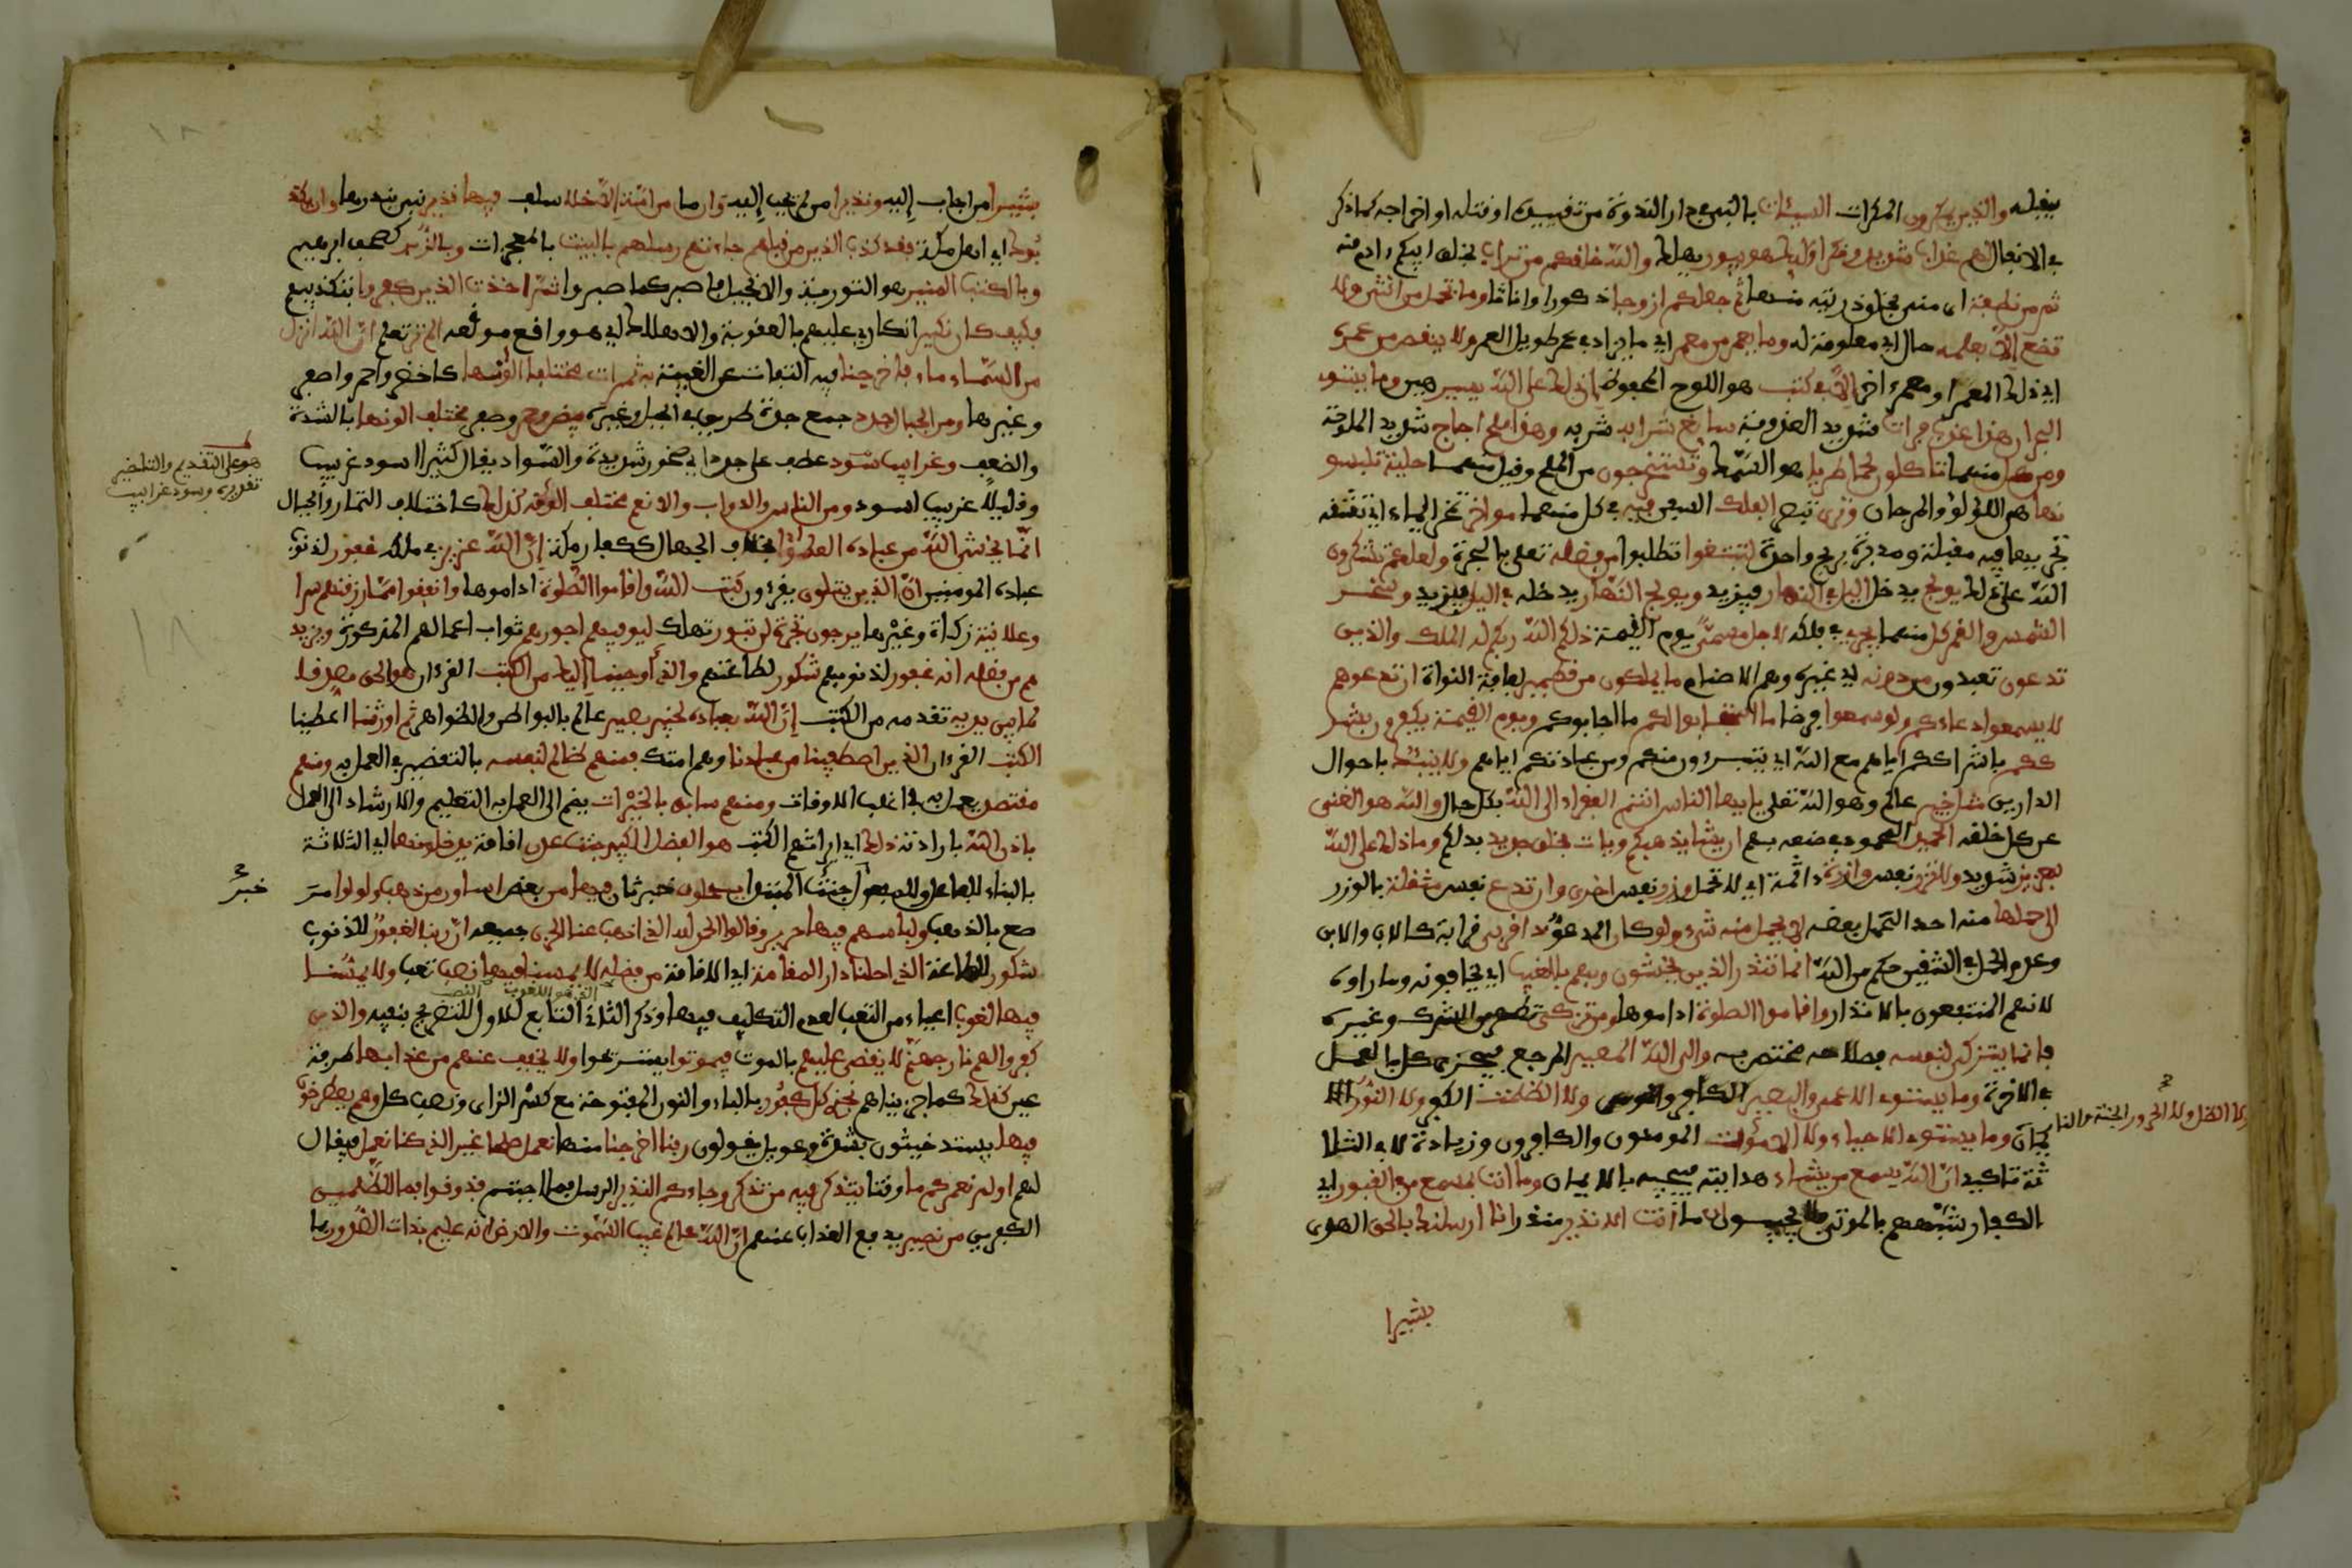 يقبله والذين يمكرون المكرات السيئات بالنبي في دار الندوة من تقييده او قتله او اخراجه كما ذكر
في الانفال لهم عذاب شديد ومكر اولئك هو يبور يهلك والله خلقكم من تراب بخلق ابيكم ءادم منه
ثم من نطفة اي مني بخلق ذريته منها ثم جعلكم ازوجا ذكورا واناثا وما تحمل من انثى ولا
تضع الا بعلمه حال اي معلومة له وما يعمر من معمر اي ما يزاد في عمر طويل العمر ولا ينقص من عمره
اي ذلك المعمر او معمر ءاخر الا في كتب هو اللوح المحفوظ ان ذلك على الله يسير هين وما يستوي
البحرن هذا عذب فرات شديد العذوبة سايغ شرابه شربه وهذا ملح اجاج شديد الملوحة
ومن كل منهما تاكلون لحما طريا هو السمك وتستخرجون من الملح وقيل منهما حلية تلبسو
نها هي اللؤلؤ والمرجان وترى تبصر الفلك السفن فيه في كل منهما مواخر تمخر الماء اي تشقه
بجريها فيه مقبلة ومدبرة بريح واحدة لتبتغوا تطلبوا من فضله تعلى بالتجرة ولعلكم تشكرون
الله على ذلك يولج يدخل اليل في النهار فيزيد ويولج النهار يدخله في اليل فيزيد وسخر
الشمس والقمر كل منهما يجري في فلكه لاجل مسمى يوم القيمة ذلكم الله ربكم له الملك والذين
تدعون تعبدون من دونه اي غيره وهم الاصنام ما يملكون من قطمير لفافة النواة ان تدعوهم
لا يسمعوا دعاءكم ولو سمعوا فرضا ما استجابوا لكم ما اجابوكم ويوم القيمة يكفرون بشر
ككم باشراككم اياهم مع الله اي يتبرءون منكم ومن عبادتكم اياهم ولا ينبئك باحوال
الدارين مثل خبير عالم وهو الله تعلى يايها الناس انتم الفقراء الى الله بكل حال والله هو الغني
عن كل خلقه الحميد المحمود في صنعه بهم ان يشا يذهبكم ويات بخلق جديد بدلكم وما ذلك على الله
بعزيز شديد ولا تزر نفس وازرة ءاثمة اي لا تحمل وزر نفس اخرى وان تدع نفس مثقلة بالوزر
الى حملها منه احدا لتحمل بعضه لا يحمل منه شيء ولو كان المدعو ذا قربى قرابة كالاب والابن
وعدم الحمل في الشقين حكم من الله انما تنذر الذين يخشون ربهم بالغيب اي يخافونه وما راوه
لانهم المنتفعون بالانذار واقاموا الصلوة اداموها ومن تزكى تطهر من الشرك وغيره
فانما يتزكى لنفسه فصلاحه مختص به والى الله المصير المرجع فيجزي كل بالعمل
في الاخرة وما يستوي الاعمى والبصير الكافر والمومن ولا الظلمت الكفر ولا النور الا
يمان وما يستوي الاحياء ولا الاموات المومنون والكافرون وزيادة لا في الثلا
ثة تاكيد ان الله يسمع من يشاء هدايته فيجيبه بالايمان وما انت بمسمع من في القبور اي
الكفار شبههم بالموتى فلا يجيبون ان ما انت الا نذير منذر انا ارسلنك بالحق الهدى
بشيرا
ولا الظل ولا الحرور الجنة والنا
بشيرا من اجاب إليه ونذيرا من لم يجب إليه وان ما من امة إلا خلا سلف فيها نذير نبي ينذرها وان يكذ
بوك اي اهل مكة فقد كذب الذين من قبلهم جاءتهم رسلهم بالبينت بالمعجزات وبالزبر كصحف ابرهيم
وبالكتب المنير هو التورية والانجيل فاصبر كما صبروا ثم اخذت الذين كفروا بتكذيبهم
فكيف كان نكير انكاري عليهم بالعقوبة والاهلاك اي هو واقع موقعه الم تر تعلم ان الله انزل
من السماء ماء فاخرجنا فيه التفات عن الغيبة به ثمرات مختلفا الونها كاخضر واحمر واصفر
وغيرها ومن الجبال جدد جمع جدة طريق في الجبل وغيره بيض وحمر وصفر مختلف الونها بالشدة
والضعف وغرابيب سود عطف على جدد اي صخور شديدة السواد يقال كثيرا اسود غربيب
وقليلا غربيب اسود ومن الناس والدواب والانعم مختلف الونه كذلك كاختلاف الثمار والجبال
انما يخشى الله من عباده العلمؤا بخلاف الجهال ككفار مكة إن الله عزيز في ملكه غفور لذنوب
عباده المومنين ان الذين يتلون يقرءون كتب الله واقاموا الصلوة اداموها وانفقوا مما رزقنهم سرا
وعلانية زكاة وغيرها يرجون تجرة لن تبور تهلك ليوفيهم اجورهم ثواب اعمالهم المذكورة ويزيد
هم من فضله انه غفور لذنوبهم شكور لطاعتهم والذي اوحينا إليك من الكتب القرءان هو الحق مصدقا
لما بين يديه تقدمه من الكتب إن الله بعباده لخبير بصير عالم بالبواطن والظواهر ثم اورثنا اعطينا
الكتب القرءان الذين اصطفينا من عبادنا وهم امتك فمنهم ظالم لنفسه بالتقصير في العمل به ومنهم
مقتصد يعمل به في اغلب الاوقات ومنهم سابق بالخيرات يضم الى العمل به التعليم والارشاد الى العمل
باذن الله بارادته ذلك اي ايراثهم الكتب هو الفضل الكبير جنت عدن اقامة يدخلونها اي الثلاثة
بالبناء للفاعل وللمفعول جنت المبتدا يحلون خبر ثان فيها من بعض اساور من ذهب ولولوا مر
صع بالذهب ولباسهم فيها حرير وقالوا الحمد لله الذي اذهب عنا الحزن جميعه ان ربنا لغفور للذنوب
شكور للطاعة الذي احلنا دار المقامة اي الاقامة من فضله لا يمسنا فيها نصب تعب ولا يمسنا
فيها لغوب اعياء من التعب لعدم التكليف فيها وذكر الثاني التابع للاول للتصريح بنفيه والذين
كفروا لهم نار جهنم لا يقضى عليهم بالموت فيموتوا يستريحوا ولا يخفف عنهم من عذابها طرفة
عين كذلك كما جزيناهم نجزي كل كفور بالياء والنون المفتوحة مع كسر الزاي ونصب كل وهم يصطرخو
فيها يستغيثون بشدة وعويل يقولون ربنا اخرجنا منها نعمل صلحا غير الذي كنا نعمل فيقال
لهم اولم نعمركم ما وقتا يتذكر فيه من تذكر وجاءكم النذير الرسل فما اجبتم فذوقوا فما للظلمين
الكفرين من نصير يدفع العذاب عنهم ان الله علم غيب السموت والارض انه عليم بذات الصدور بما
هو على التقديم والتاخير
تقديره وسود غرابيب
خبر
١٨